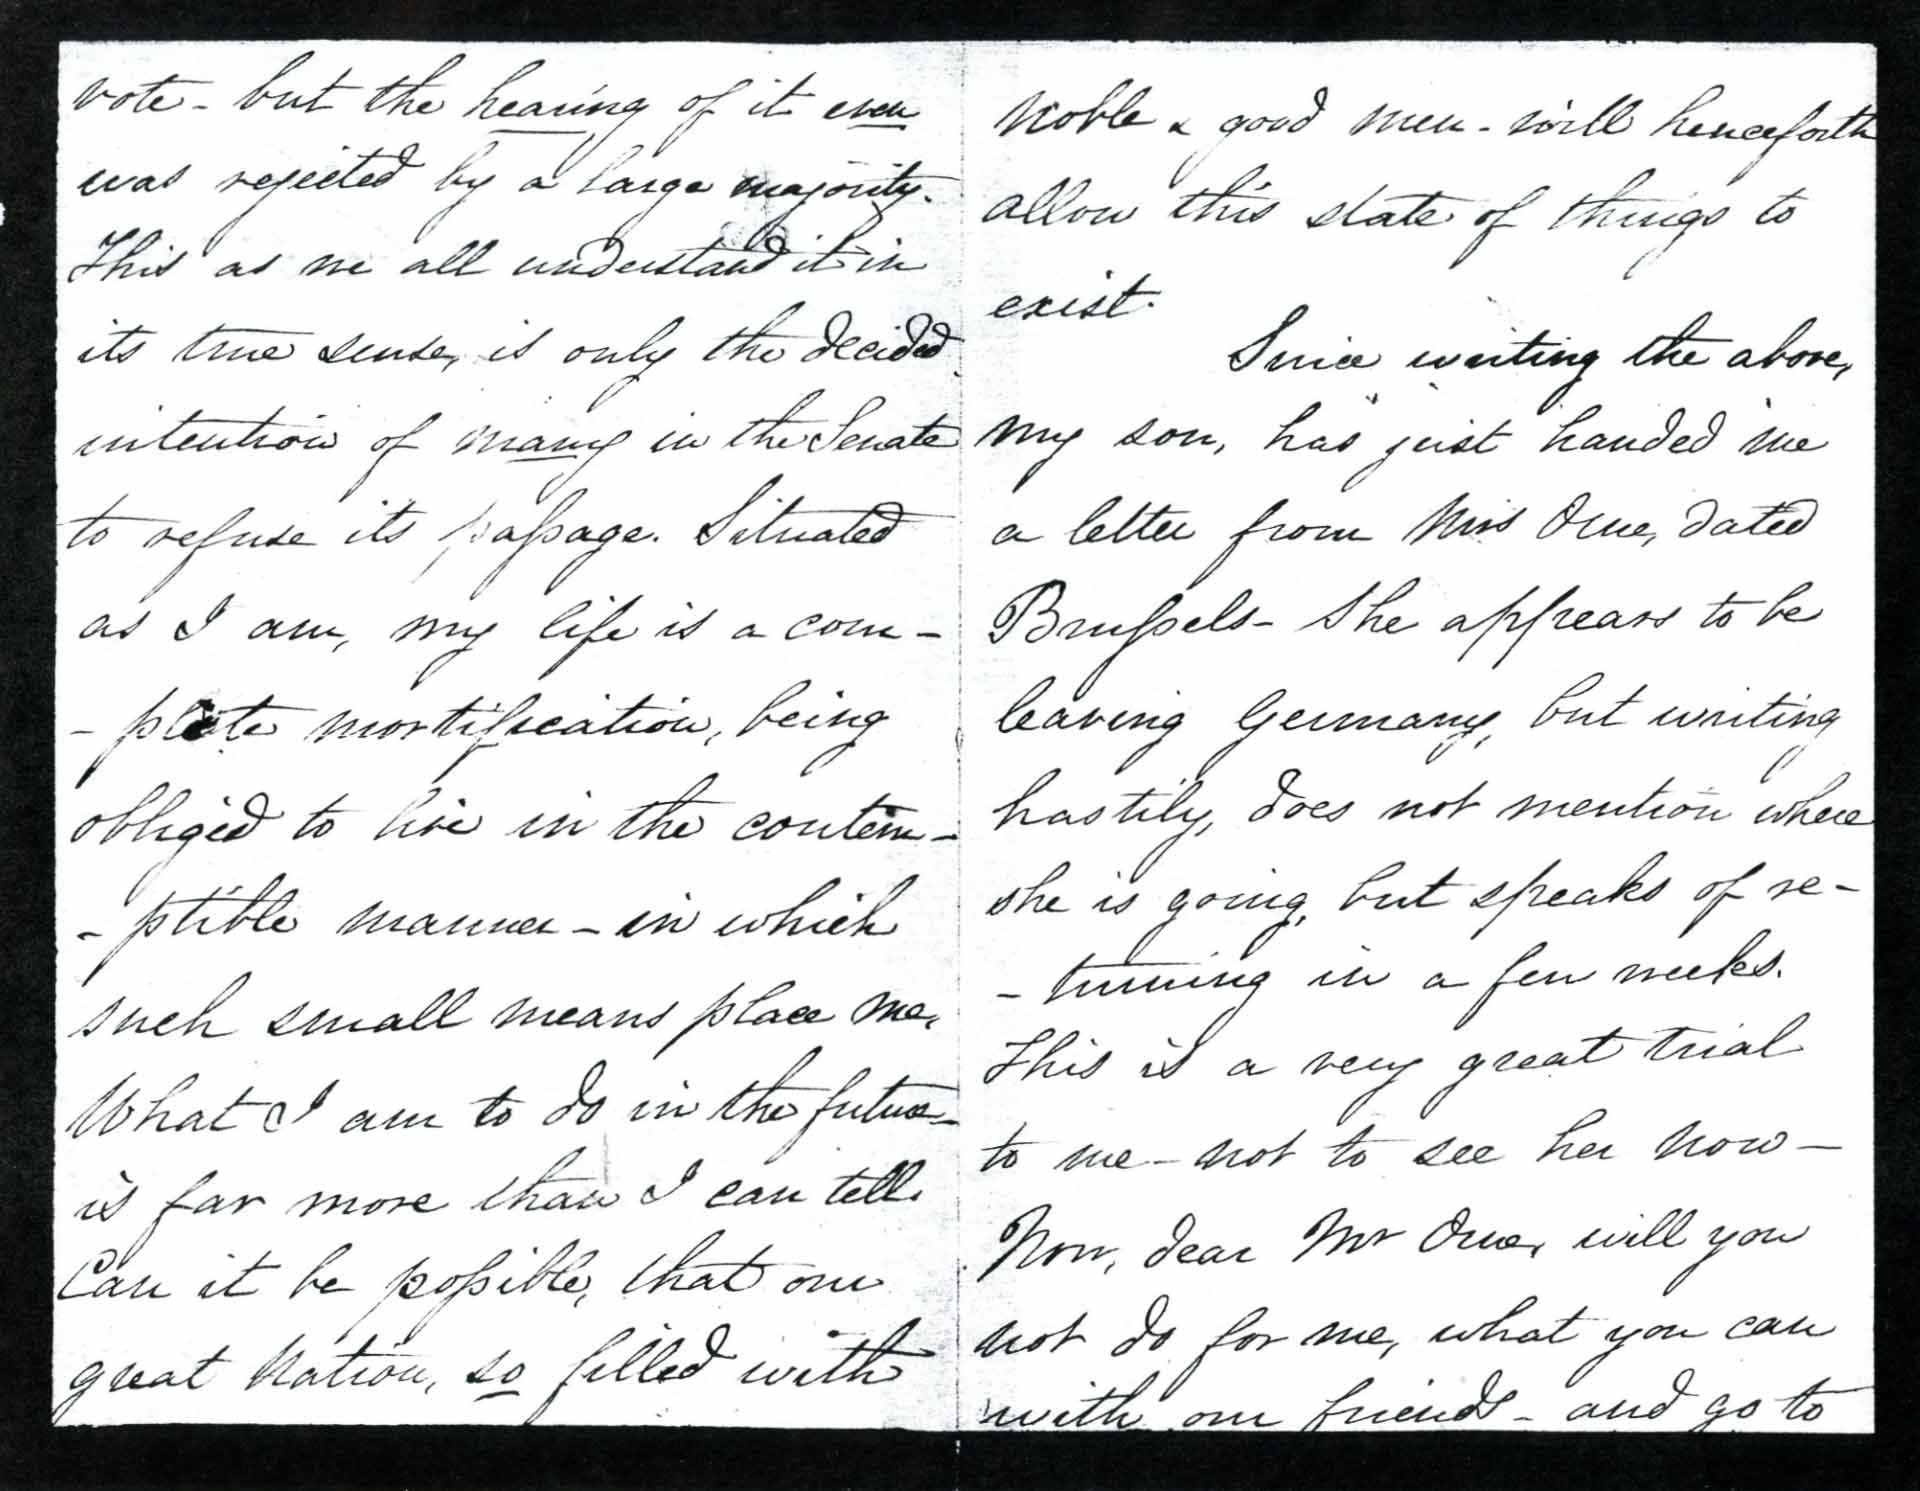 vote - but the hearing of it even
was rejected by a large majority.
This as we all understand it in
its true sense, is only the decided
intention of many in the Senate
to refuse its passage. Situated
as I am, my life is a com-
- plete mortification, being
obliged to live in the contem-
- ptible manner - in which
such small means place me.
What I am to do in the future -
is far more than I can tell.
Can it be possible, that our
great Nation, so filled with
Noble & good men - will henceforth
allow this state of things to
exist.
Since writing the above,
my son, has just handed me
a letter from Mrs Orne, dated
Brussels - She appears to be
leaving Germany, but writing
hastily, does not mention where
she is going, but speaks of re-
- turning in a few weeks.
This is a very great trial
to me - not to see her now -
Now, dear Mr Orne, will you
not do for me, what you can
with our friends - and go to